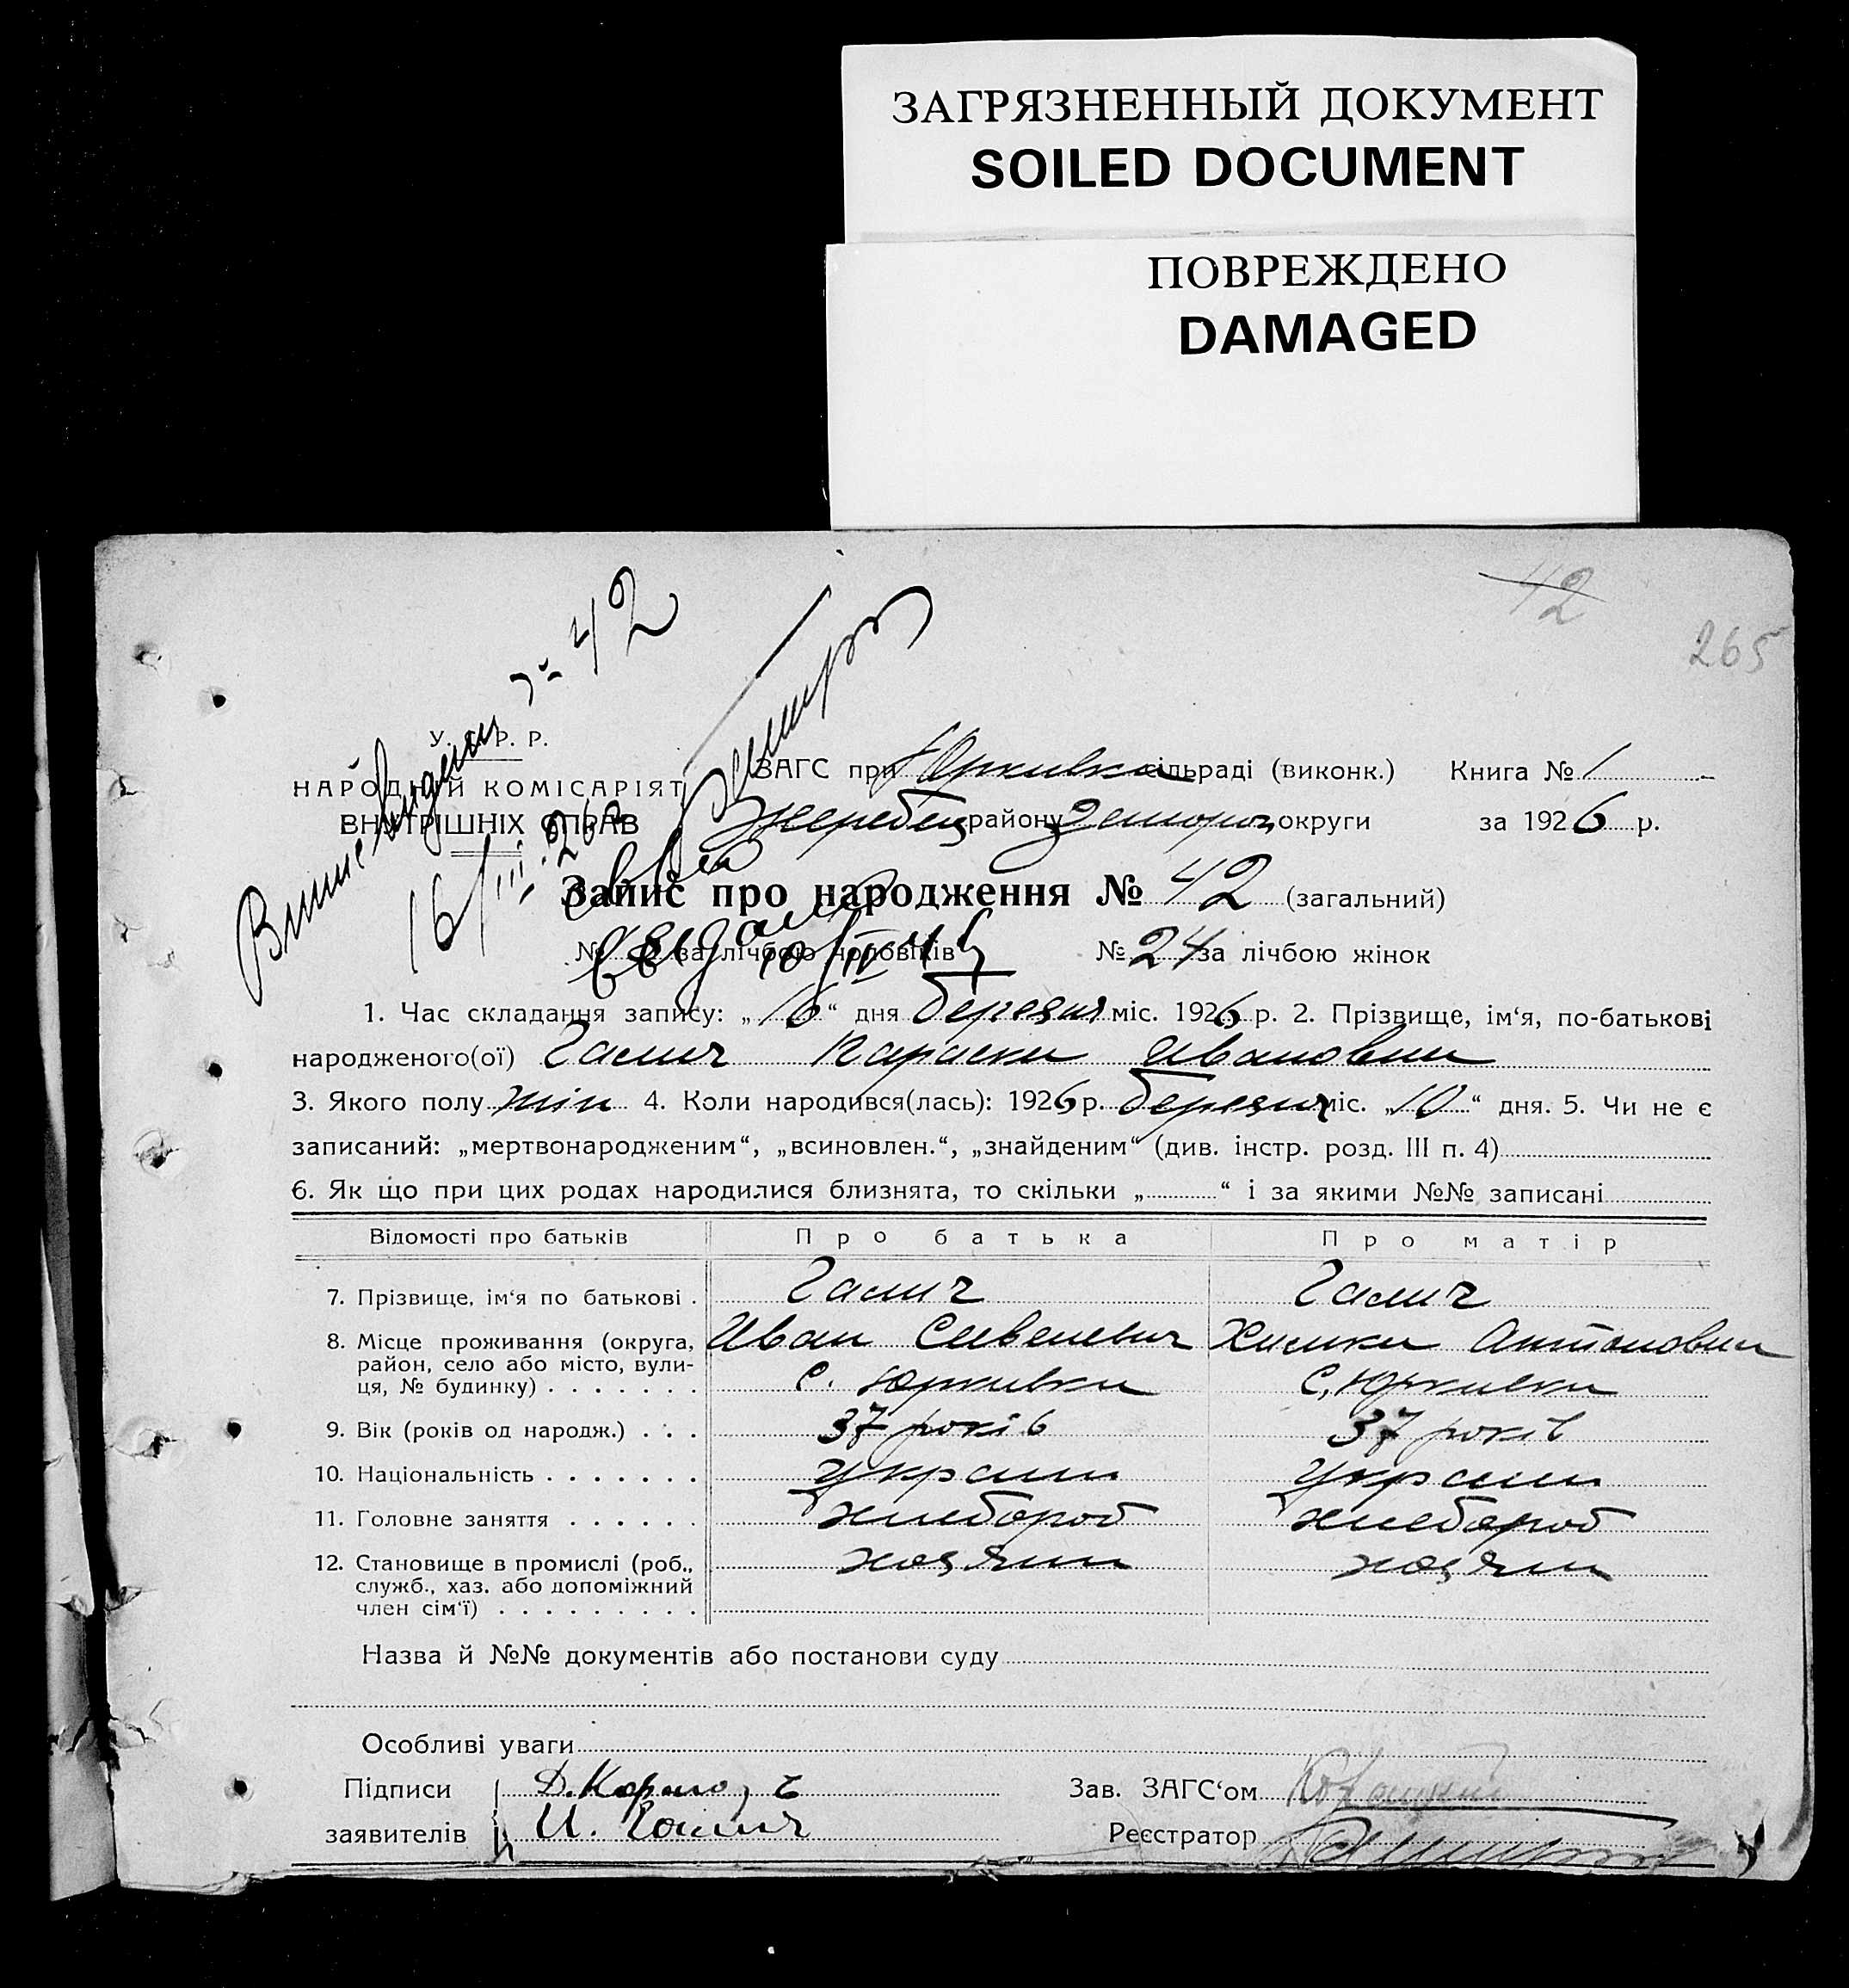 ЗАГРЯЗНЕННЫЙ ДОКУМЕНТ
SOILED DOCUMENT
ПОВРЕЖДЕНО
DAMAGED
42
265
№ 42
У. С. Р. Р.
НАРОДНІЙ КОМІСАРІЯТ
ВНУТРІШНІХ СПРАВ
16/III 26
ЗАГС при Юркивка сільраді (виконк.) Книга № 1
Жеребец району Запорож округи за 1926 р.
Запис про народження № 42 (загальний)
№ за лічбою чоловіків № 24 за лічбою жінок
1. Час складання запису: „16“ дня березня міс. 1926 р. 2. Прізвище, ім‘я, по-батькові
народженого(ої) Галич Параска Ивановна
3. Якого полу жін 4. Коли народився(лась): 1926 р. березня міс. „10“ дня. 5. Чи не є
записаний: „мертвонародженим“, „всиновлен.“, „знайденим“ (див. інстр. розд. III п. 4)
6. Як що при цих родах народилися близнята, то скільки „ “ і за якими №№ записані
Відомості про батьків Про батька Про матір
7. Прізвище, ім‘я по батькові . Галич Галич
Иван Савелевич Химка Антоновна
8. Місце проживання (округа, район, село або місто, вулиця, № будинку) . . . . . . . с. Юркивка с. Юркивка
9. Вік (років од народж.) . . . 37 років 37 років
10. Національність . . . . . . . украин украин
11. Головне заняття . . . . . . хлебороб хлебороб
12. Становище в промислі (роб., служб., хаз. або допоміжний член сім‘ї) . . . . . . . . . хозяин хозяин
Назва й №№ документів або постанови суду
Особливі уваги
Підписи Зав. ЗАГС‘ом
заявителів И. Галич Реєстратор